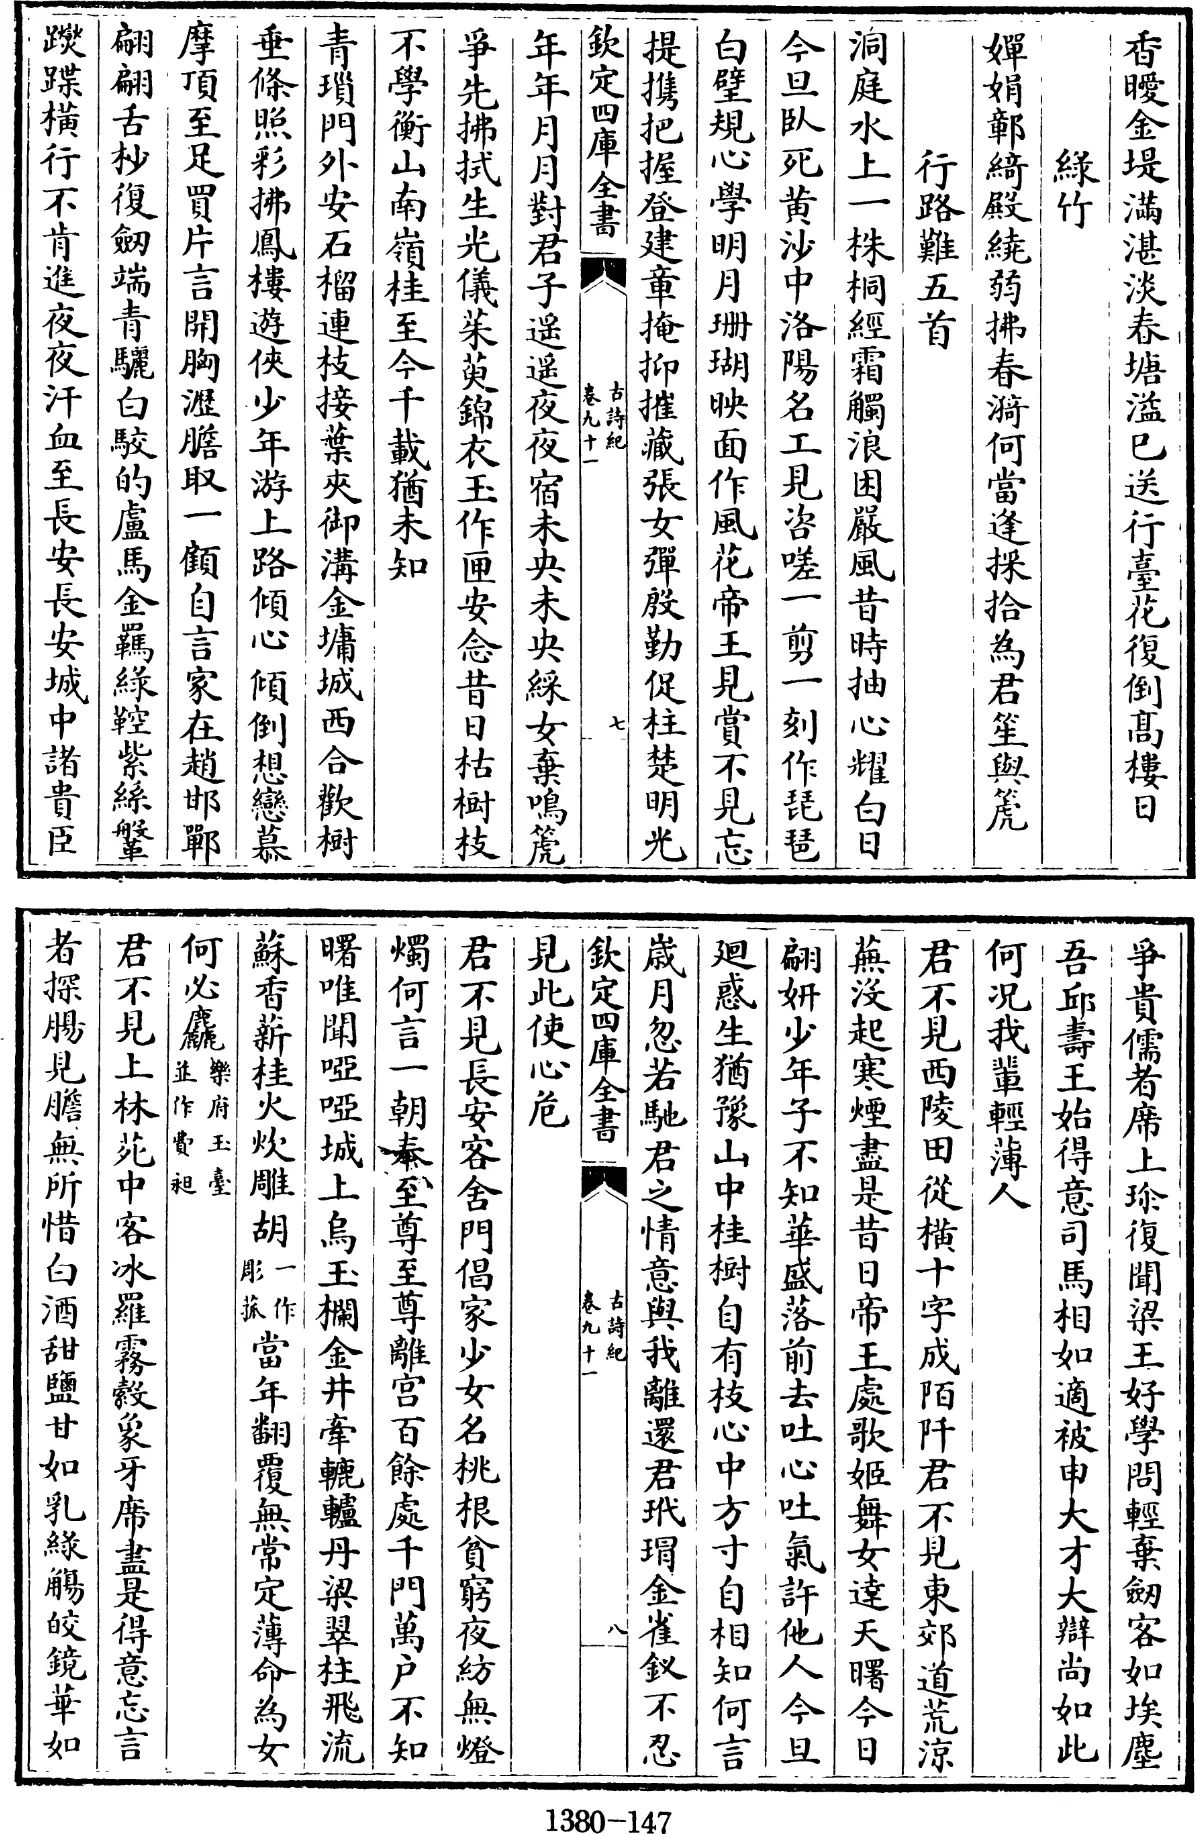 香曖金堤滿湛淡春塘溢已送行臺花復倒髙樓日
綠竹
嬋娟鄣綺殿繞弱拂春漪何當逢採拾為君笙與箎
行路難五首
洞庭水上一株桐經霜觸浪困嚴風昔時抽心耀白日
今旦臥死黄沙中洛陽名工見咨嗟一剪一刻作琵琶
白璧規心學明月珊瑚映面作風花帝王見賞不見忘
提携把握登建章掩抑摧藏張女彈殷勤促柱楚明光
欽定四庫全書
古詩紀
卷九十一
七
年年月月對君子遥遥夜夜宿未央未央綵女棄鳴箎
爭先拂拭生光儀茱萸錦衣玉作匣安念昔日枯樹枝
不學衡山南嶺桂至今千載猶未知
青瑣門外安石榴連枝接葉夾御溝金墉城西合歡樹
垂條照彩拂鳳樓遊俠少年游上路傾心傾倒想戀慕
摩頂至足買片言開胸瀝膽取一顧自言家在趙邯鄲
翩翩舌杪復劒端青驪白駮的盧馬金羈綠鞚紫絲鞶
蹀躞橫行不肯進夜夜汗血至長安長安城中諸貴臣
爭貴儒者席上珍復聞梁王好學問輕棄劒客如埃塵
吾邱壽王始得意司馬相如適被申大才大辯尚如此
何况我輩輕薄人
君不見西陵田從橫十字成陌阡君不見東郊道荒涼
蕪沒起寒煙盡是昔日帝王處歌姬舞女達天曙今日
翩妍少年子不知華盛落前去吐心吐氣許他人今旦
廻惑生猶豫山中桂樹自有枝心中方寸自相知何言
嵗月忽若馳君之情意與我離還君玳瑁金雀釵不忍
欽定四庫全書
古詩紀
卷九十一
八
見此使心危
君不見長安客舍門倡家少女名桃根貧窮夜紡無燈
燭何言一朝奉至尊至尊離宫百餘處千門萬户不知
曙唯聞啞啞城上烏玉欄金井牽轆轤丹梁翠柱飛流
蘇香薪桂火炊雕胡一作彫菰當年翻覆無常定薄命為女
何必麤樂府玉臺並作費昶
君不見上林苑中客冰羅霧縠象牙席盡是得意忘言
者探腸見膽無所惜白酒甜鹽甘如乳綠觴皎鏡華如
1380-147